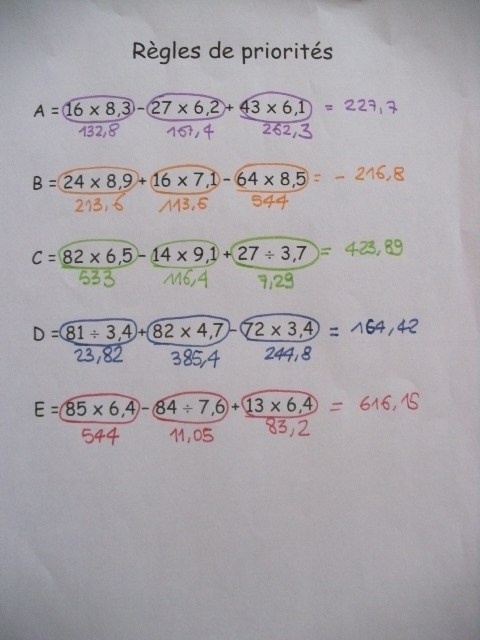 Règles de priorités
A = 16 x 8,3 - 27 x 6,2 + 43 x 6,1 = 227,7
132,8 167,4 262,3
B = 24 x 8,9 + 16 x 7,1 - 64 x 8,5 = - 216,8
213,6 113,6 544
C = 82 x 6,5 - 14 x 9,1 + 27 ÷ 3,7 = 423,89
533 116,4 7,29
D = 81 ÷ 3,4 + 82 x 4,7 - 72 x 3,4 = 164,42
23,82 385,4 244,8
E = 85 x 6,4 - 84 ÷ 7,6 + 13 x 6,4 = 616,15
544 11,05 83,2